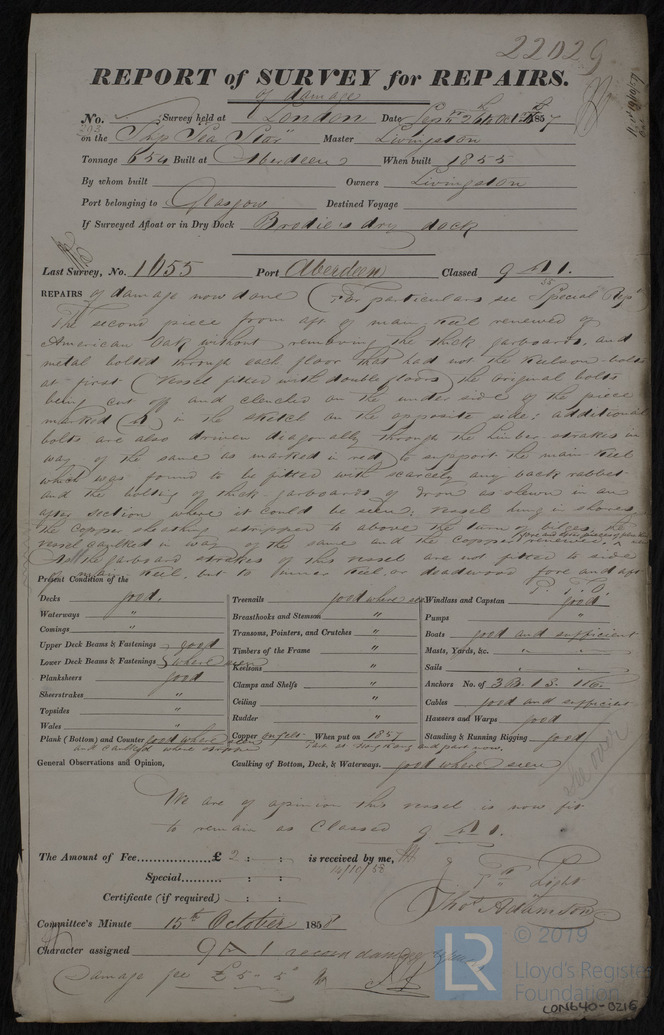 22029
REPORT of SURVEY for REPAIRS.
of damage
No. Survey held at London Date Sept. 24th 1857
293
on the Ship "Sea Star" Master Livingston
Tonnage 654 Built at Aberdeen When built 1855
By whom built Owners Livingston
Port belonging to Glasgow Destined Voyage
If Surveyed Afloat or in Dry Dock Brodie's dry dock
Last Survey, No. 1055 Port Aberdeen Classed 9 A 1.
55
REPAIRS of damage now done (For particulars see Special Rept
The second piece from aft of main keel renewed of
American Oak without removing the thick garboards, and
metal bolted through each floor that had not the Keelson bolts
at first (Vessel fitted with double floors) the original bolts
being cut off and clenched on the under side of the piece
marked (A) in the sketch on the opposite side: additional
bolts are also driven diagonally through the limber strakes in
way of the same as marked in red to support the main keel
which was found to be fitted with scarcely any back rabbet
and the bolting of thick garboards of Iron as shewn in an
after section where it could be seen; vessel hung in shores
the copper sheathing stripped to above the turn of bilges, the
vessel caulked in way of the same and the copper
As the garboard strakes of this vessel are not fitted to side
keel, but to inner keel or deadwood fore and aft
P. T. O.
Present Condition of the
Decks good.
Waterways "
Comings "
Upper Deck Beams & Fastenings good
Lower Deck Beams & Fastenings where seen
Planksheers good
Sheerstrakes "
Topsides "
Wales "
Plank (Bottom) and Counter good where seen
and caulked where stripped
Treenails good where seen
Breasthooks and Stemson "
Transoms, Pointers, and Crutches "
Timbers of the Frame "
Keelsons "
Clamps and Shelfs "
Ceiling "
Rudder "
Copper When put on 1857
at Hong Kong and part now.
Windlass and Capstan good
Pumps "
Boats good and sufficient
Masts, Yards, &c. " "
Sails " "
Anchors No. of 3B. 1S. 1K.
Cables good and sufficient
Hausers and Warps good
Standing & Running Rigging good
General Observations and Opinion, Caulking of Bottom, Deck, & Waterways. good where seen
see over
We are of opinion this vessel is now fit
to remain as Classed 9 A 1.
The Amount of Fee £ 2 : : is received by me,
Special : :
14/10/58
Certificate (if required) : :
Light
Thos. Adamson
Committee's Minute 15th October 1858
Character assigned 9 A 1
Damage fee £5 " 5
LR
© 2019
Lloyd's Register
Foundation
LON640-0216